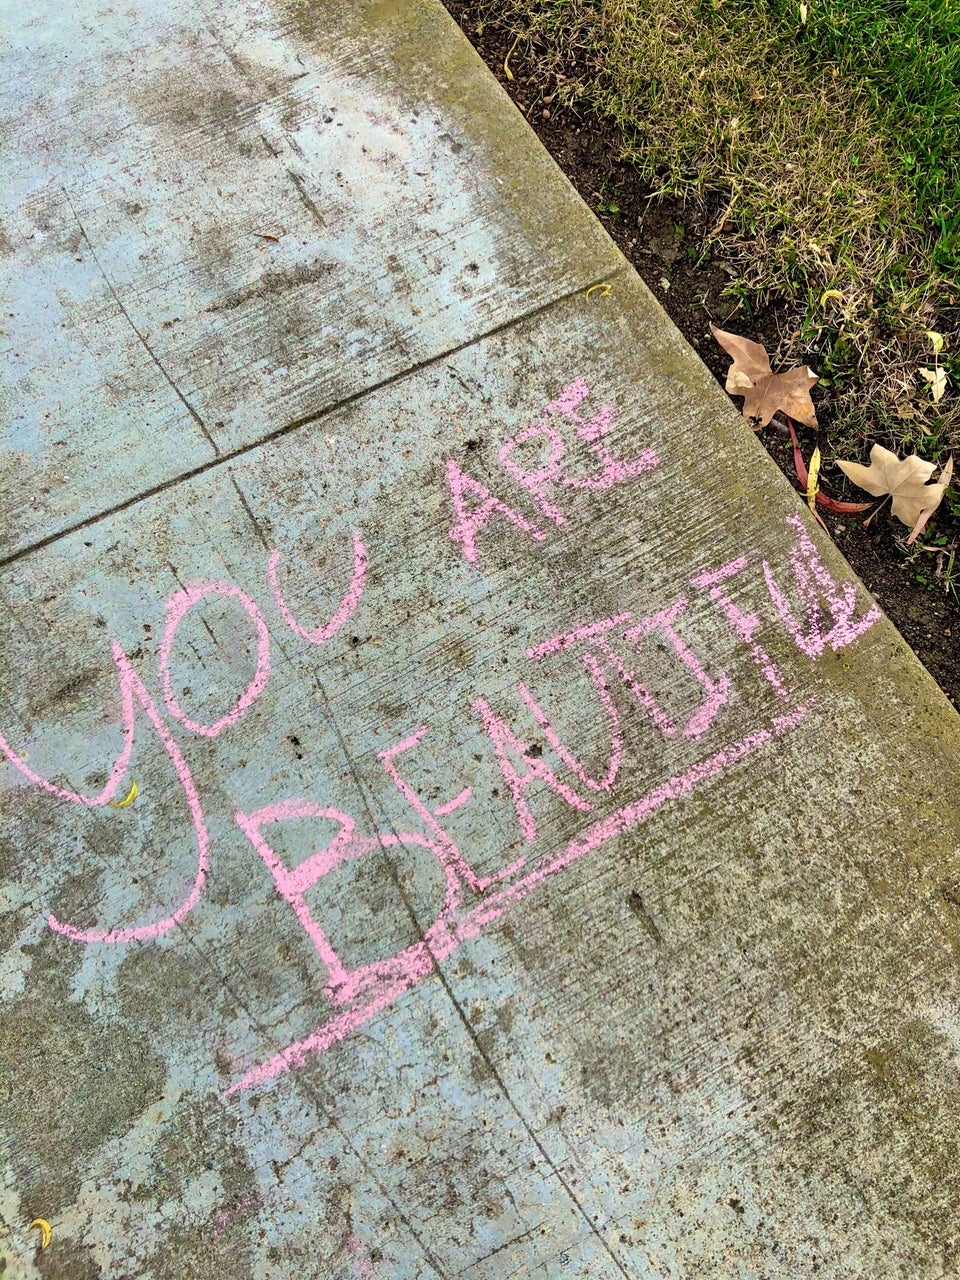 YOU ARE
BEAUTIFUL